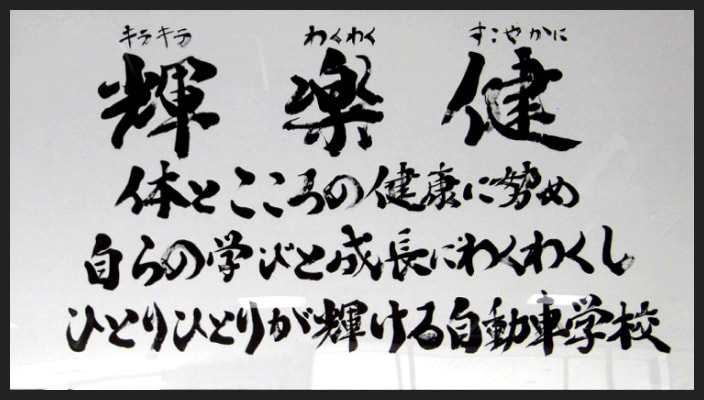 キラキラ わくわく すこやかに
輝 楽 健
体とこころの健康に努め
自らの学びと成長にわくわくし
ひとりひとりが輝ける自動車学校